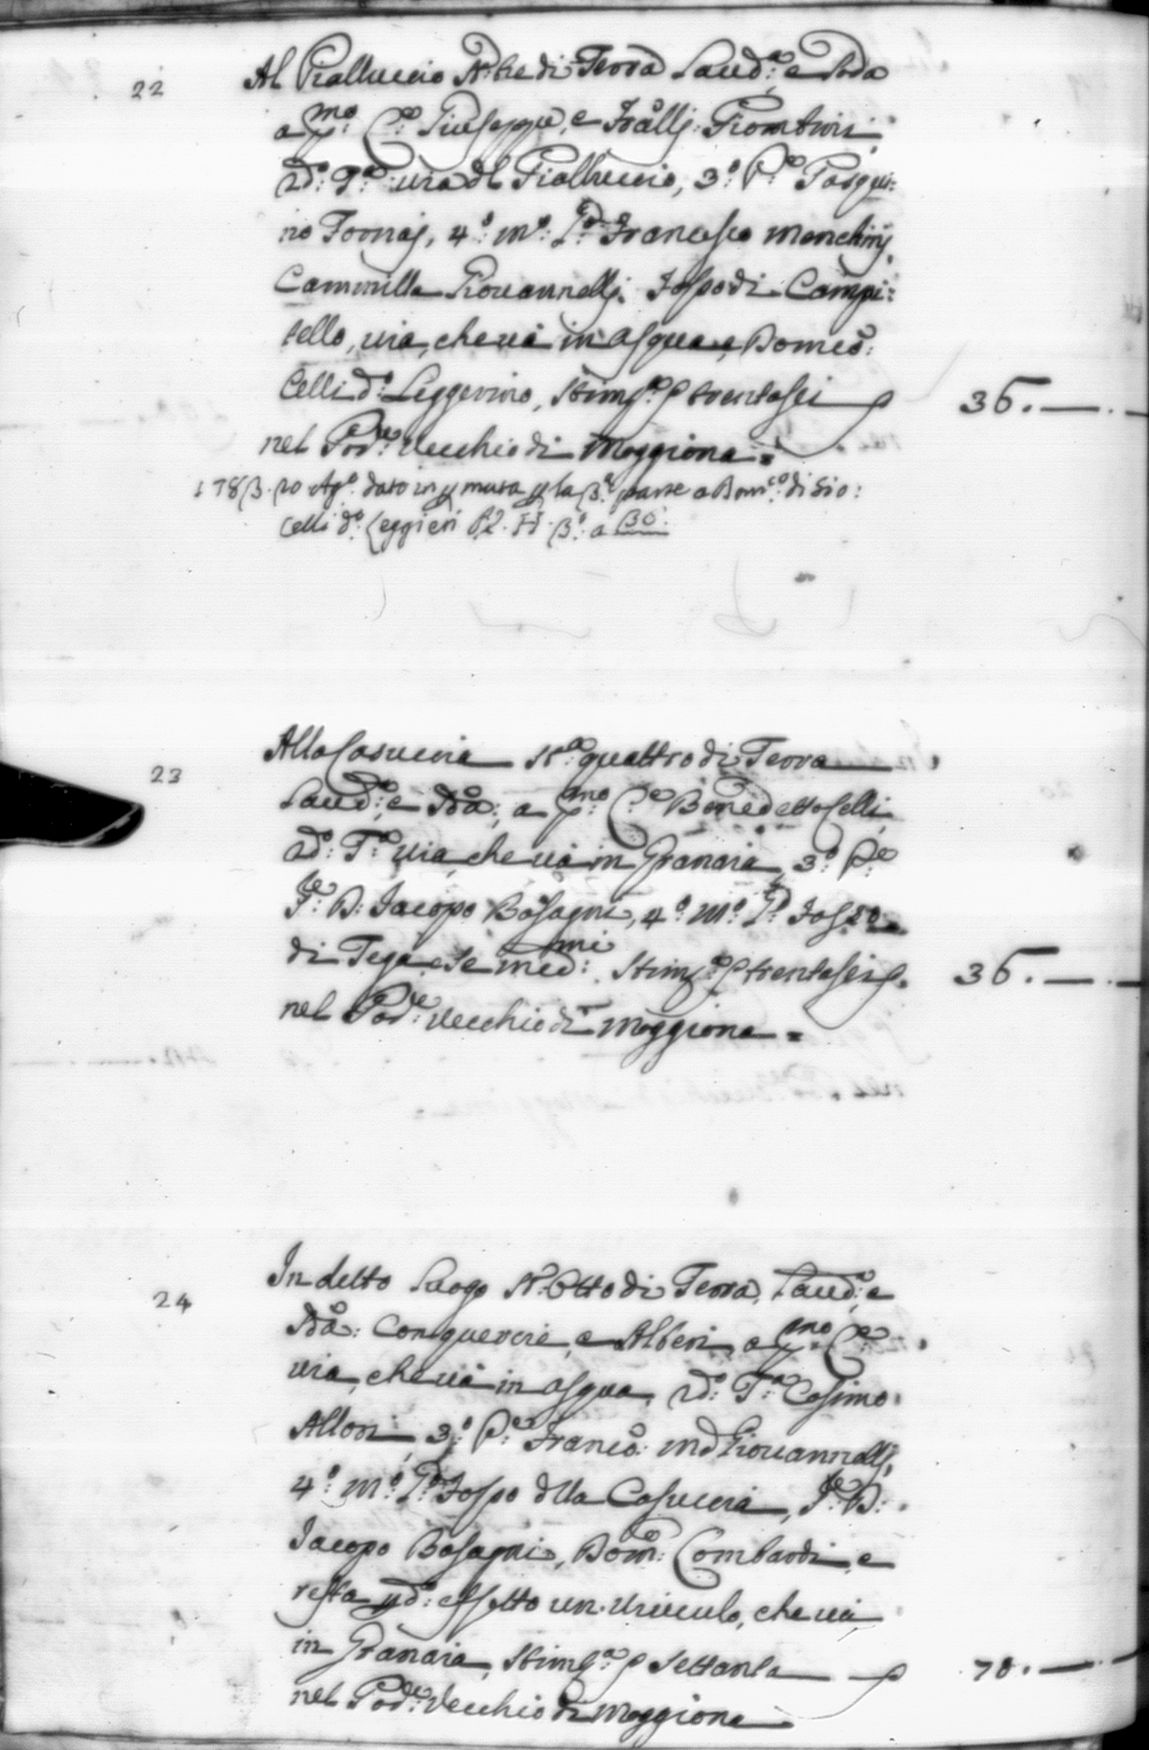 22 Al Pialluccio St: tre di Terra Laud:ª, e Soda
a p:mo C:º Giuseppe, e Fralli: Piombini
2d:º T:ª via dl Pialluccio, 3:º P:º Pasqui:
no Fornaj, 4:º m:º P:º Francesco Menchinj
Cammilla Giovannellj. Fosso di Campi:
tello, via, che và in Asqua, e Domco:
Celli d:º Leggerino, Stim:º p trentasei p 36.—.—
nel Pod:re Vecchio di Moggiona =
178β. 20 Agº. dato in p muta p la β:ª parte a Dom:co di Gio:
Celli dº: Leggieri a β0
23 Alla Casuccia St:ª quattro di Terra
Laud:ª, e Sda:, a p:mo C:º Benedetto Celli
2d:º T:ª via, che và in Granaia, 3:º P:º
J:e D: Jacopo Basagni, 4:º m:º P:º Fosso
di Tega, e Se med:mi: Stim:º p trentasei p. 36.—.—
nel Pod:re Vecchio di Moggiona =
24 In detto Luogo St: Otto di Terra, Laud:ª, e
Sda: con quercie, e Alberi, a p:mo C:º
via, che và in Asqua, 2d:º T:ª Cosimo
Allori, 3:º P:º Franco: md Giovannellj,
4:º m:º P:º Fosso dlla Casuccia, J:e D:
Jacopo Basagni, Dom: Lombardi, e
resta p d:º effetto un Viucculo, che và
in Granaia, Stim:º p Settanta — p 70.—.—
nel Pod:re Vecchio di Moggiona